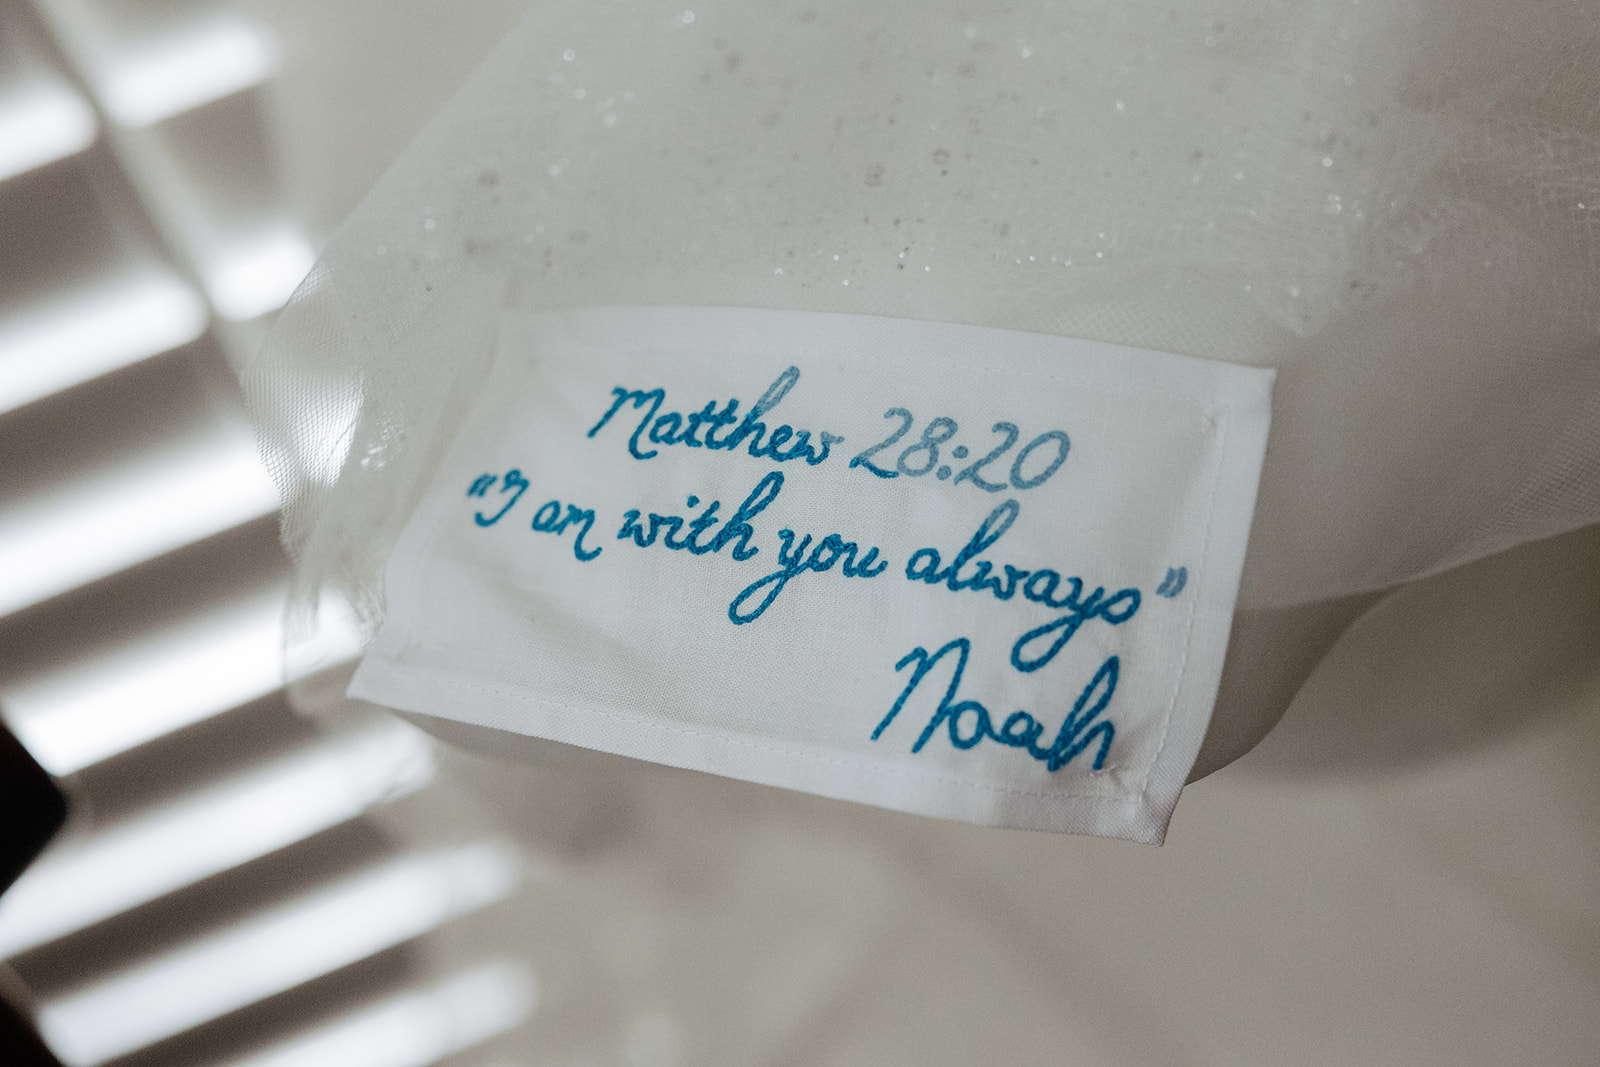 Matthew 28:20
"I am with you always"
Noah